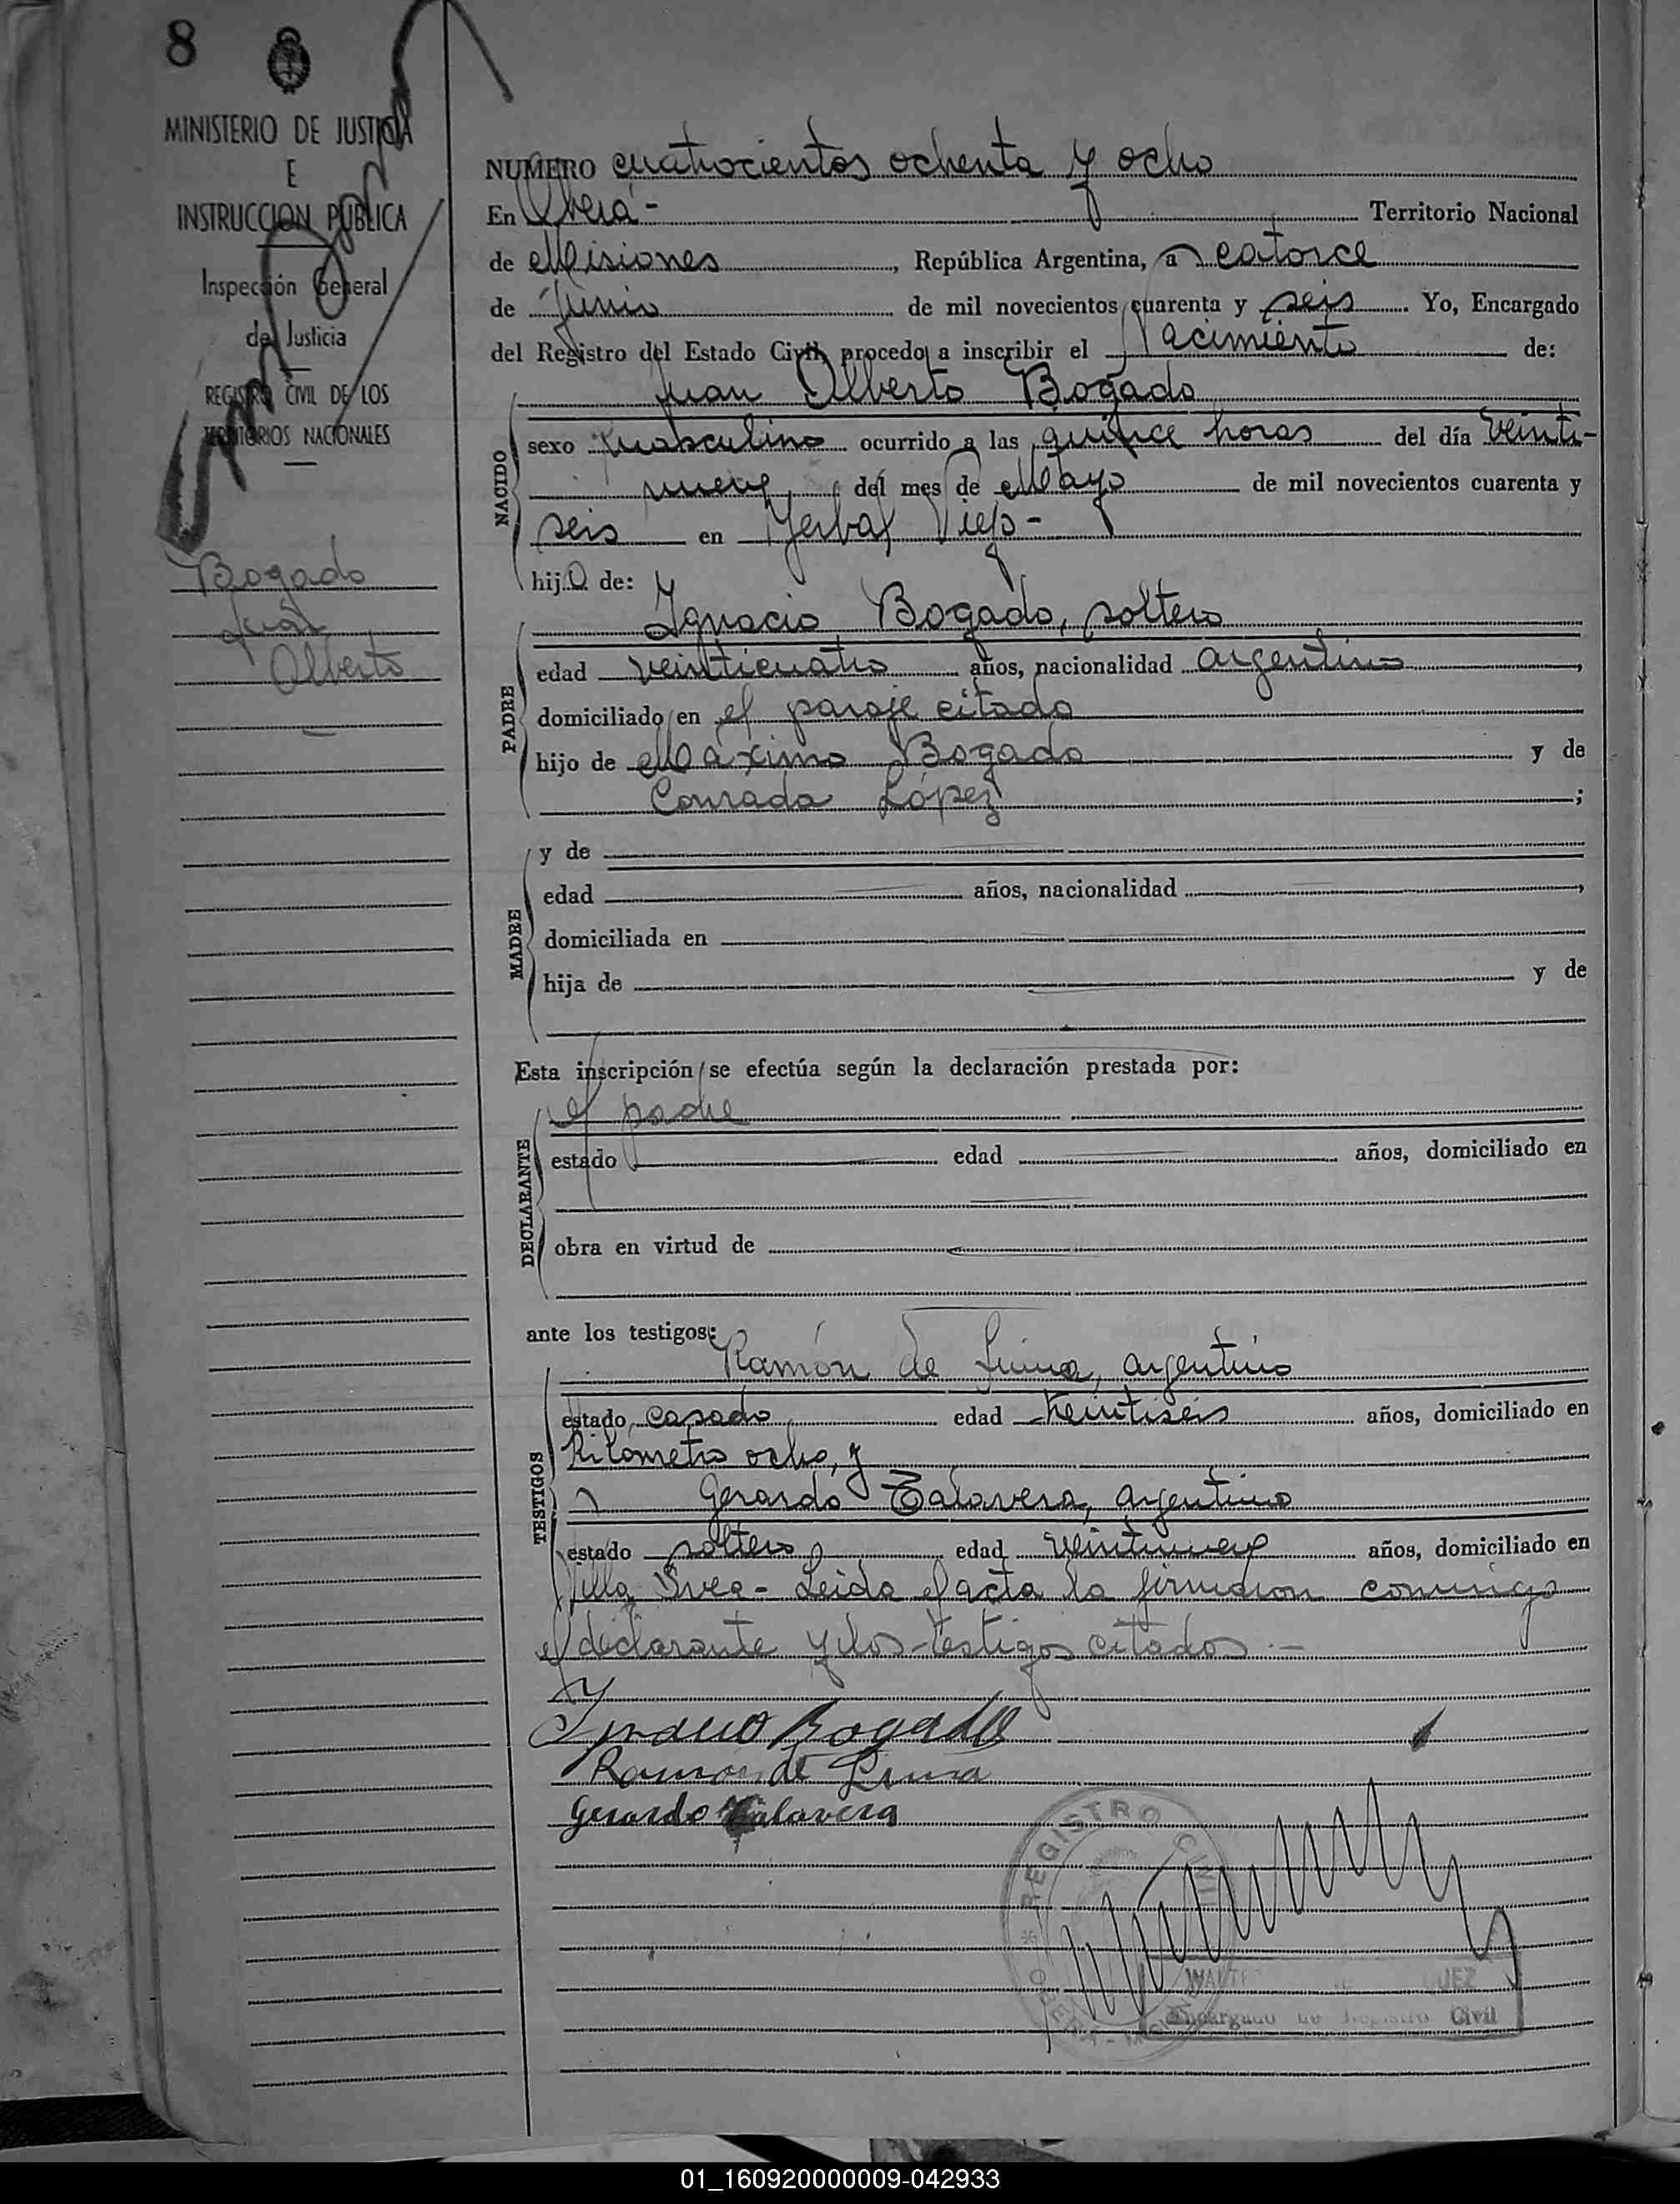 8
MINISTERIO DE JUSTICIA
E
INSTRUCCION PUBLICA
Inspección General
de Justicia
REGISTRO CIVIL DE LOS
TERRITORIOS NACIONALES
Bogado
Juan
Alberto
NUMERO cuatrocientos ochenta y ocho
En Oberá - Territorio Nacional
de Misiones, República Argentina, a catorce
de Junio de mil novecientos cuarenta y seis. Yo, Encargado
del Registro del Estado Civil, procedo a inscribir el Nacimiento de:
Juan Alberto Bogado
NACIDO
sexo masculino ocurrido a las quince horas del día veinti-
nueve del mes de Mayo de mil novecientos cuarenta y
seis en Yerbal Viejo -
hijo de:
Ignacio Bogado, soltero
PADRE
edad veinticuatro años, nacionalidad argentino,
domiciliado en el paraje citado
hijo de Máximo Bogado y de
Conrada López;
MADRE
y de
edad años, nacionalidad,
domiciliada en
hija de y de
Esta inscripción se efectúa según la declaración prestada por:
el padre
DECLARANTE
estado edad años, domiciliado en
obra en virtud de
ante los testigos:
Ramón de Lima, argentino
TESTIGOS
estado casado edad veintiseis años, domiciliado en
Kilometro ocho, y
Gerardo Talavera, argentino
estado soltero edad veintinueve años, domiciliado en
Villa Svea - Leida el acta la firmaron conmigo
el declarante y los testigos citados. -
Ignacio Bogado
Ramon de Lima
Gerardo Talavera
REGISTRO CIVIL
Encargado de Registro Civil
01_160920000009-042933